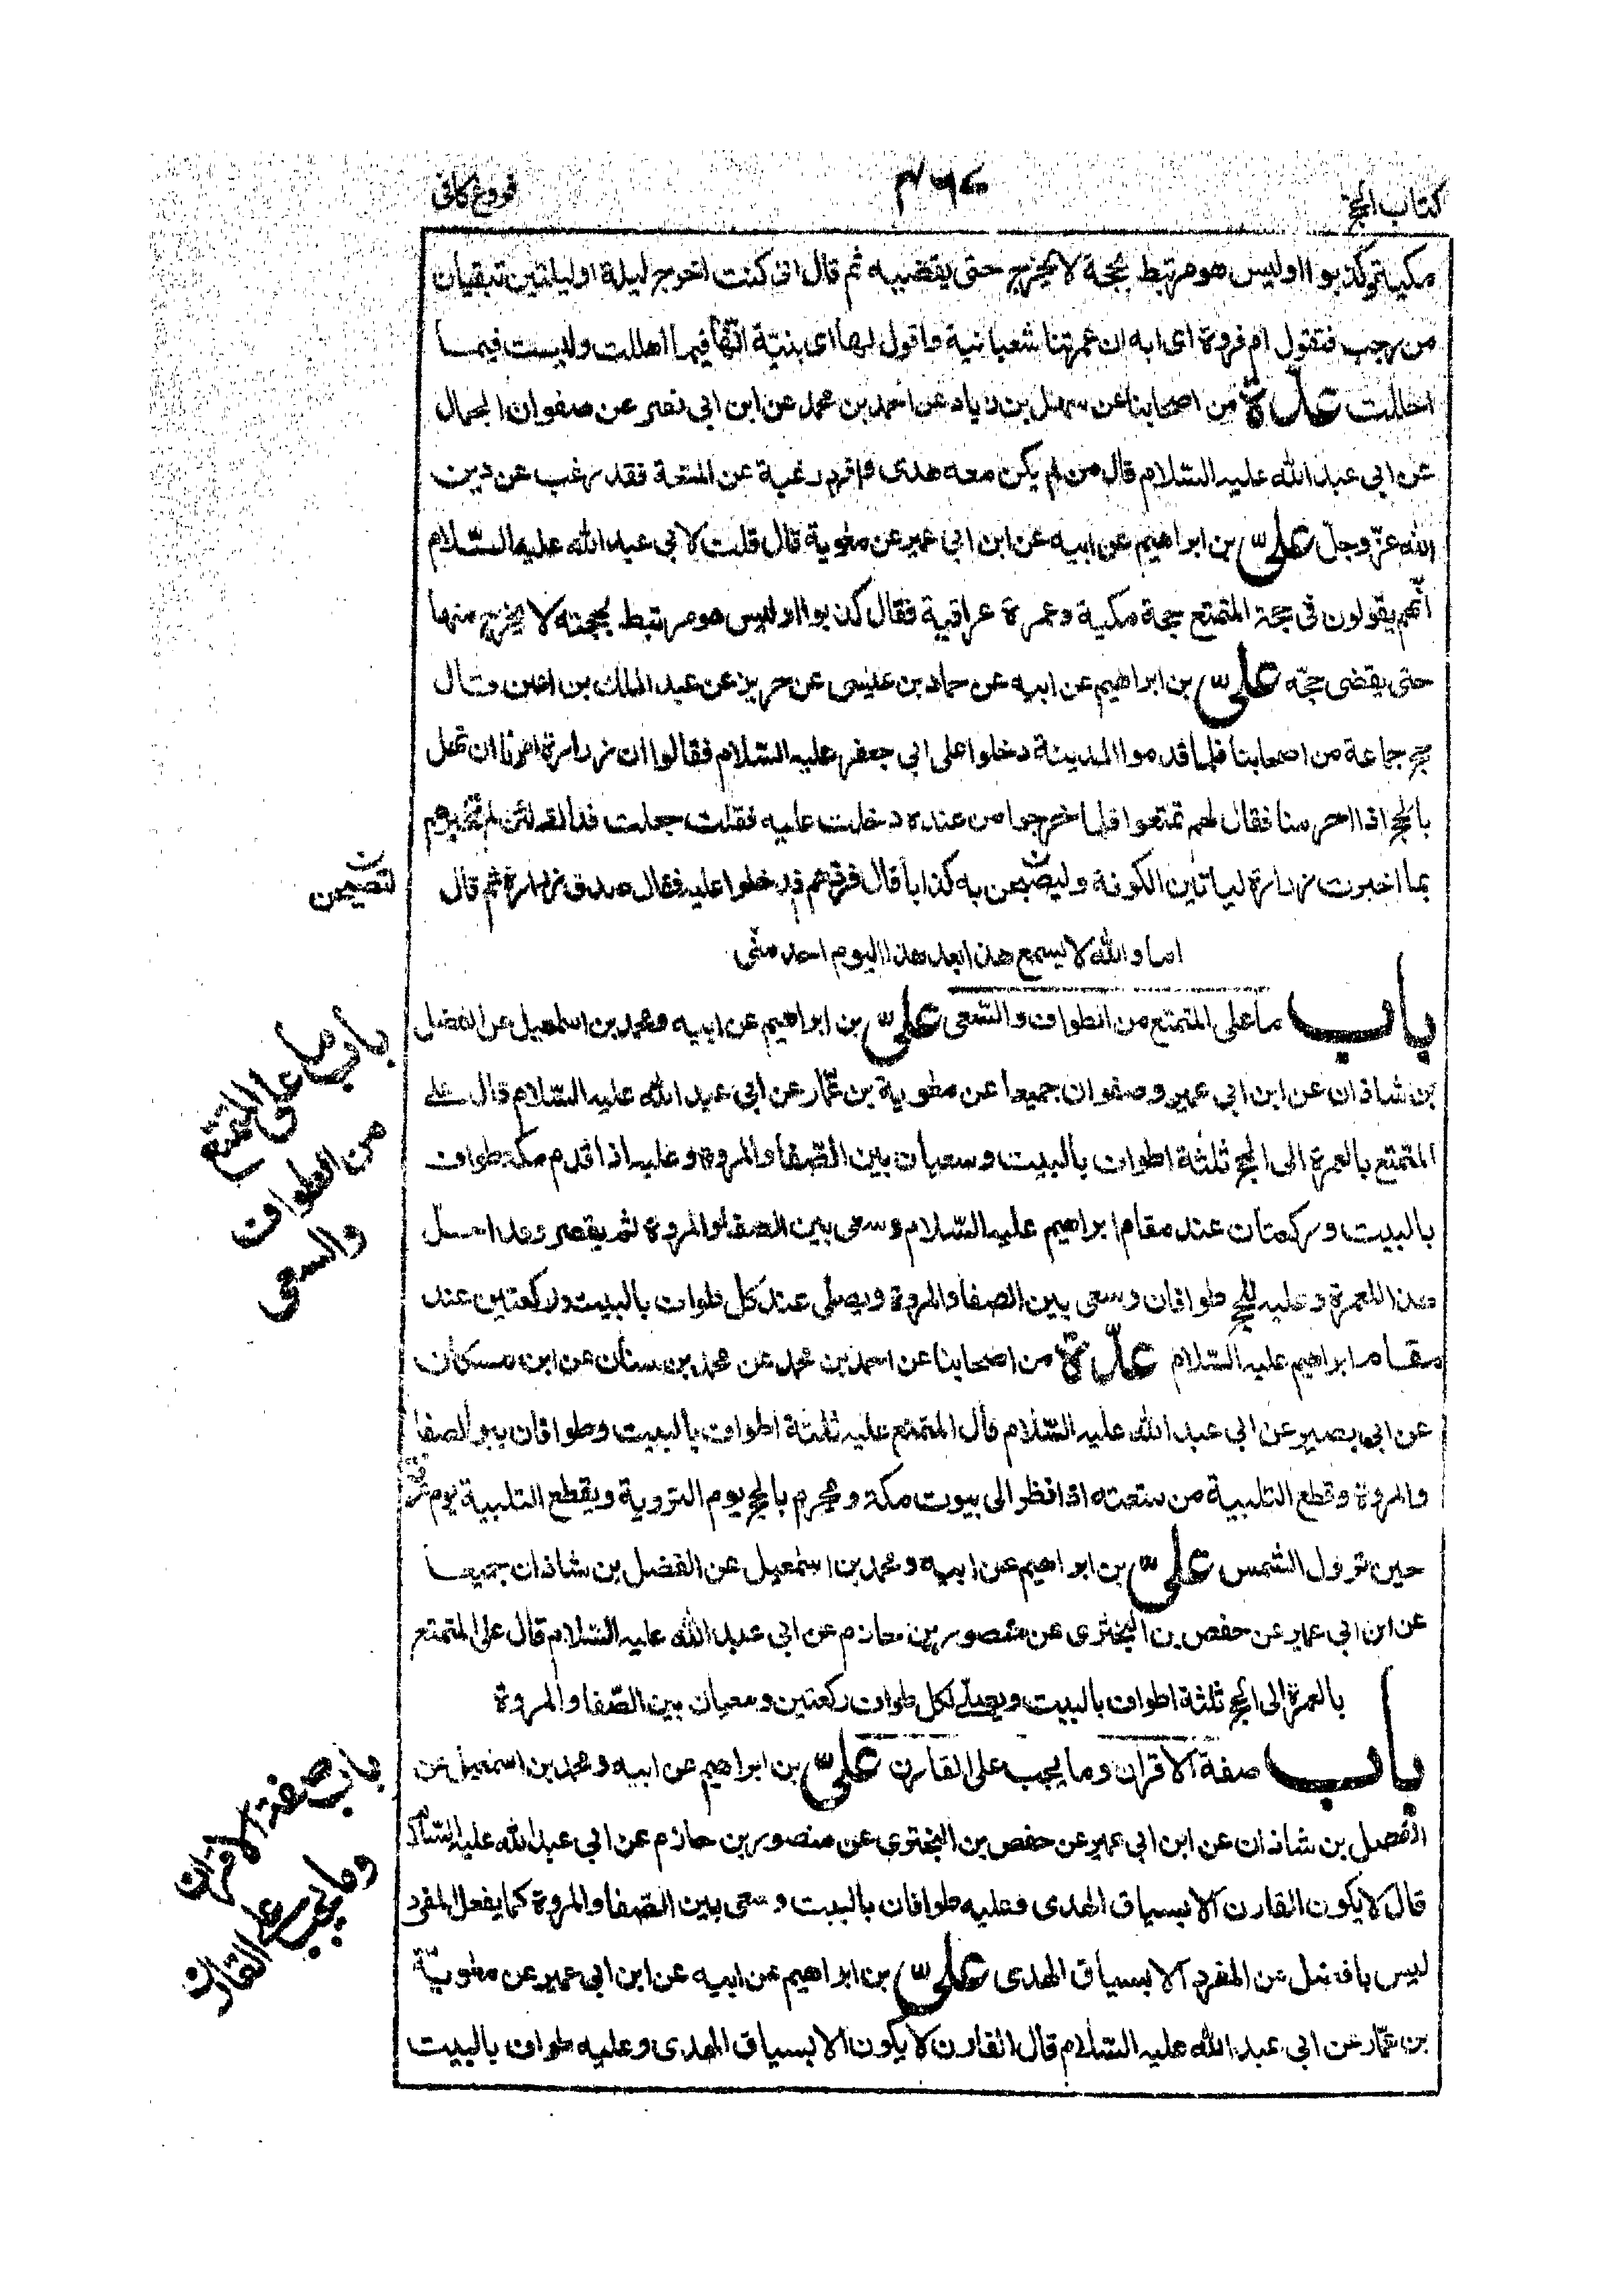 كتاب الحج
فروع كافى
مكية كذبوا اوليس هو مرتبط بحجة لا يخرج حتى يقضيه ثم قال انى كنت اخرج ليلة او ليلتين تبقيان
من رجب فتقول ام فروة اى ابه ان عمرتنا شعبانية واقول لها اى بنية انها فيما اهللت وليست فيما
احللت عدّة من اصحابنا عن سهل بن زياد عن احمد بن محمد عن ابن ابى نصر عن صفوان الجمال
عن ابى عبد الله عليه السّلام قال من لم يكن معه هدى وافرد رغبة عن المتعة فقد رغب عن دين
الله عزّ وجلّ علىّ بن ابراهيم عن ابيه عن ابن ابى عمير عن معوية قال قلت لابى عبد الله عليه السّلام
انّهم يقولون فى حجة المتمتع حجة مكية وعمرة عراقية فقال كذبوا اوليس هو مرتبط بحجته لا يخرج منها
حتى يقضى حجّه علىّ بن ابراهيم عن ابيه عن حماد بن عيسى عن حريز عن عبد الملك بن اعين قال
حج جماعة من اصحابنا فلما قدموا المدينة دخلوا على ابى جعفر عليه السّلام فقالوا ان زرارة امرنا ان نهل
بالحج اذا احرمنا فقال لهم تمتعوا فلما خرجوا من عنده دخلت عليه فقلت جعلت فداك لئن لم تخبرهم
بما اخبرت زرارة لياتين الكوفة وليصبحن به كذابا قال فردهم فدخلوا عليه فقال صدق زرارة ثم قال
لتصبحن
اما والله لا يسمع هذا بعد هذا اليوم احد منّى
باب ما على المتمتع من الطواف والسّعى علىّ بن ابراهيم عن ابيه ومحمد بن اسمعيل عن الفضل
بن شاذان عن ابن ابى عمير وصفوان جميعا عن معوية بن عمّار عن ابى عبد الله عليه السّلام قال على
المتمتع بالعمرة الى الحج ثلثة اطواف بالبيت وسعيان بين الصّفا والمروة وعليه اذا قدم مكة طواف
بالبيت وركعتان عند مقام ابراهيم عليه السّلام وسعى بين الصفا والمروة ثم يقصر وقد احل
هذا للعمرة وعليه للحج طوافان وسعى بين الصفا والمروة ويصلى عند كل طواف بالبيت ركعتين عند
مقام ابراهيم عليه السّلام عدّة من اصحابنا عن احمد بن محمد عن محمد بن سنان عن ابن مسكان
عن ابى بصير عن ابى عبد الله عليه السّلام قال المتمتع عليه ثلثة اطواف بالبيت وطوافان بين الصفا
والمروة وقطع التلبية من متعته اذا نظر الى بيوت مكة ويحرم بالحج يوم التروية ويقطع التلبية يوم عرفة
حين تزول الشمس علىّ بن ابراهيم عن ابيه ومحمد بن اسمعيل عن الفضل بن شاذان جميعا
عن ابن ابى عمير عن حفص بن البخترى عن منصور بن حازم عن ابى عبد الله عليه السّلام قال على المتمتع
بالعمرة الى الحج ثلثة اطواف بالبيت ويصلى لكل طواف ركعتين وسعيان بين الصّفا والمروة
باب صفة الاقران وما يجب على القارن علىّ بن ابراهيم عن ابيه ومحمد بن اسمعيل عن
الفضل بن شاذان عن ابن ابى عمير عن حفص بن البخترى عن منصور بن حازم عن ابى عبد الله عليه السّلام
قال لا يكون القارن الا بسياق الهدى وعليه طوافان بالبيت وسعى بين الصّفا والمروة كما يفعل المفرد
ليس بافضل من المفرد الا بسياق الهدى علىّ بن ابراهيم عن ابيه عن ابن ابى عمير عن معوية
بن عمّار عن ابى عبد الله عليه السّلام قال القارن لا يكون الا بسياق الهدى وعليه طواف بالبيت
باب ما على المتمتع
من الطواف
والسعى
باب صفة الاقران
وما يجب على
القارن